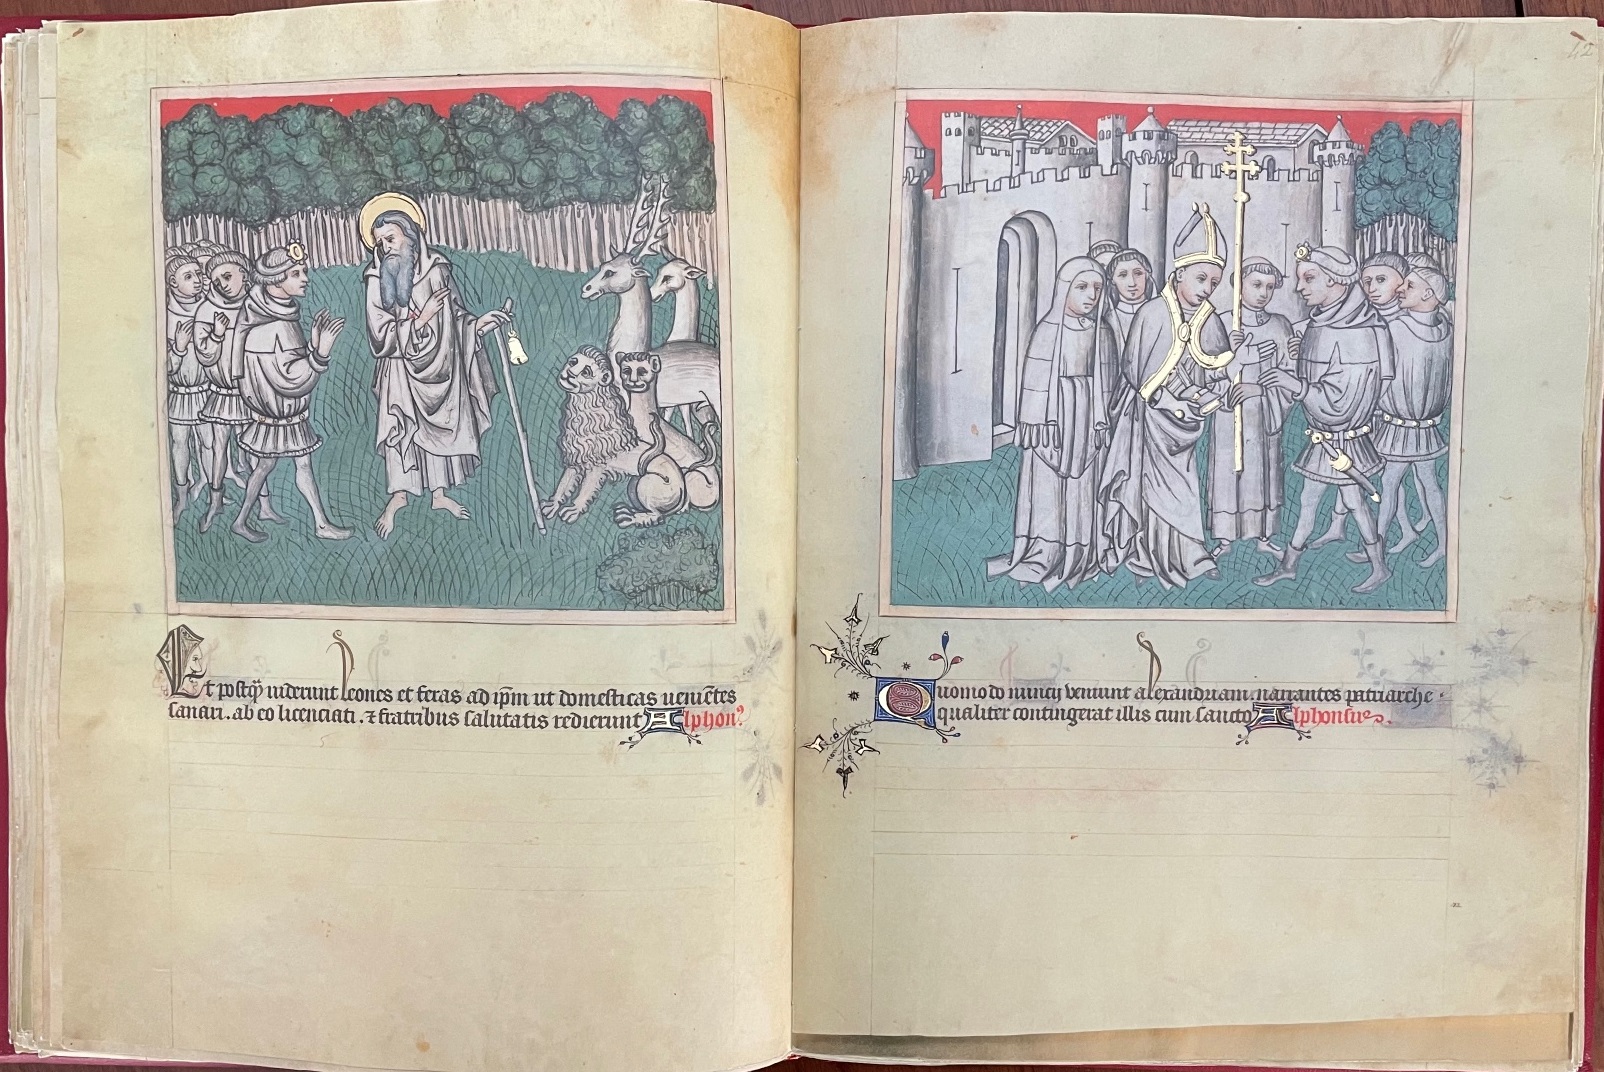 Et postq̄ viderunt leones et feras ad ip̄m ut domesticas ueniētes
sanari. ab eo licenciati. ⁊ fratribus salutatis redierunt Alphon?
42
Quomodo nuncij veniunt alexandriam. narrantes patriarche.
qualiter contingerat illis cum sancto Alphonsus.